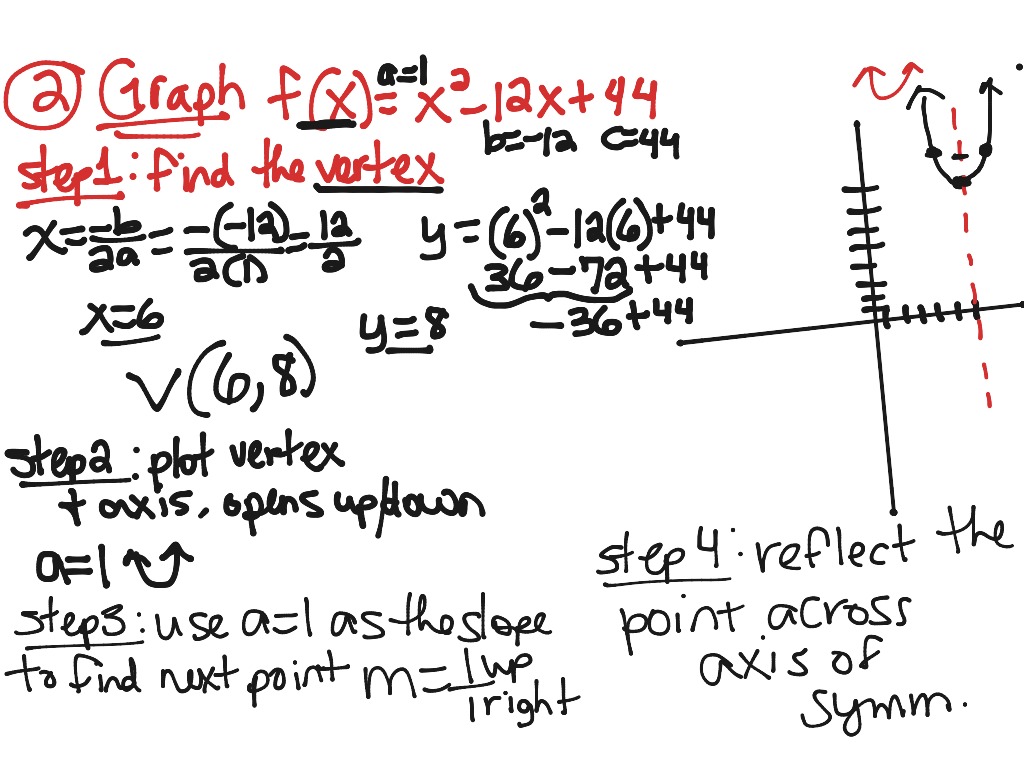 ② Graph f(x) = x² - 12x + 44
a=1
b=-12 c=44
step1: find the vertex
x = -b/2a = -(-12)/2(1) = 12/2
x=6
y = (6)² - 12(6) + 44
36 - 72 + 44
-36 + 44
y = 8
V (6,8)
step2: plot vertex
+ axis. opens up/down
a=1
step3: use a=1 as the slope
to find next point m = 1 up/1 right
step4: reflect the
point across
axis of
symm.